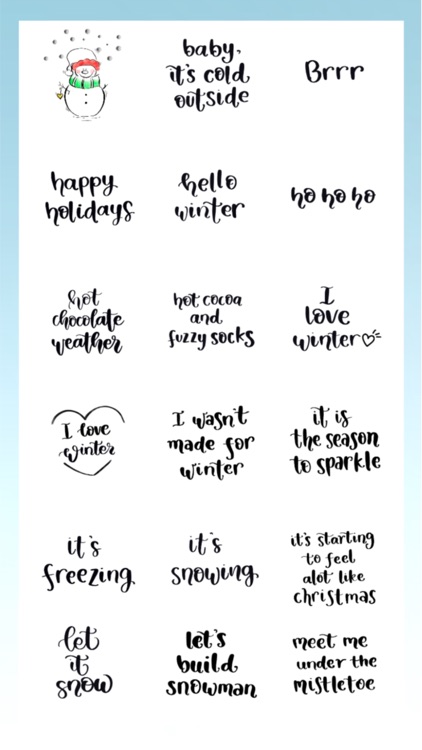 baby,
it's cold
outside
Brrr
happy
holidays
hello
winter
ho ho ho
hot
chocolate
weather
hot cocoa
and
fuzzy socks
I
love
winter
I love
winter
I wasn't
made for
winter
it is
the season
to sparkle
it's
freezing
it's
snowing
it's starting
to feel
alot like
christmas
let
it
snow
let's
build
snowman
meet me
under the
mistletoe